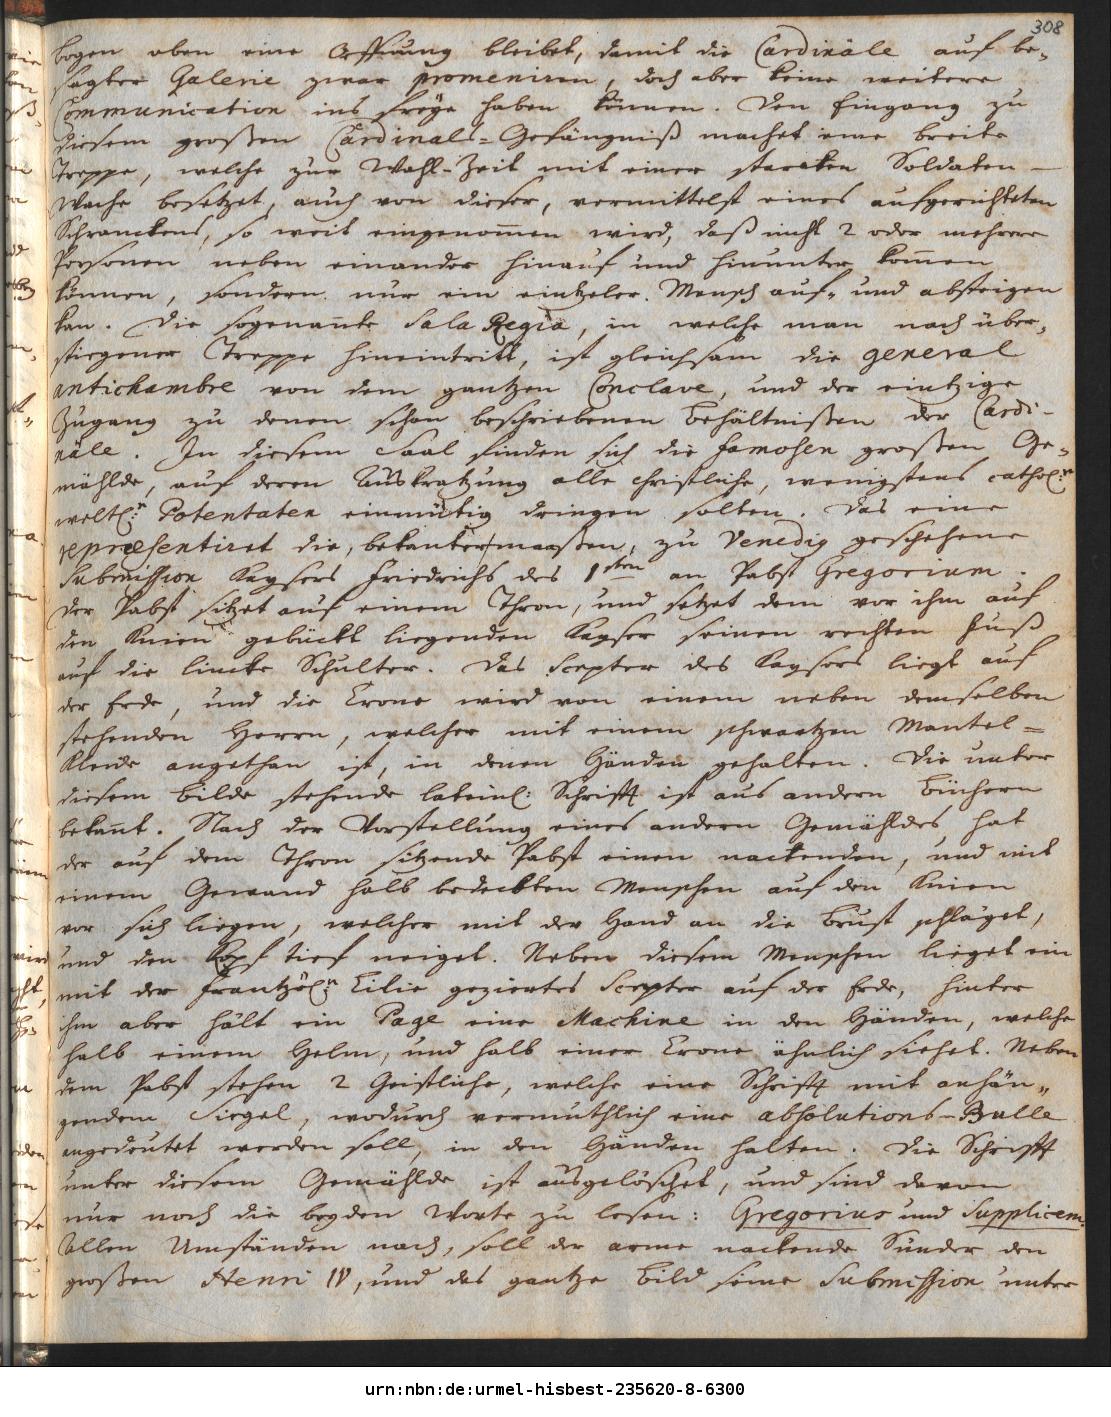 308
bogen oben eine Öffnung bleibet, damit die Cardinäle auf be-
sagter Galerie zwar promeniren, doch aber keine weitere
Communication ins freye haben können. Den Eingang zu
diesem großen Cardinals-Gefängniß machet eine breite
Treppe, welche zur Wahl-Zeit mit einer starcken Soldaten-
Wache besetzet, auch von dieser, vermittelst eines aufgerichteten
Schranckens, so weit eingenommen wird, daß nicht 2 oder mehrere
Personen neben einander hinauf und hinunter kommen
können, sondern nur ein eintzeler Mensch auf- und absteigen
kan. Die sogenannte Sala Regia, in welche man nach über-
stiegener Treppe hineintritt, ist gleichsam die general
antichambre von dem gantzen Conclave, und der eintzige
Zugang zu denen schon beschriebenen Behältnißen der Cardi-
näle. In diesem Saal finden sich die famosen großen Ge-
mählde, auf deren Auskratzung alle christliche, wenigstens cathol:
weltl: Potentaten einmütig dringen solten. Das eine
repræsentiret die, bekantermaaßen, zu Venedig geschehene
Submission Kaysers Friedrichs des 1sten an Pabst Gregorium.
Der Pabst sitzet auf einem Thron, und setzet dem vor ihm auf
den Knien gebückt liegenden Kayser seinen rechten Fuß
auf die lincke Schulter. Das Scepter des Kaysers liegt auf
der Erde, und die Crone wird von einem neben demselben
stehenden Herrn, welcher mit einem schwartzen Mantel-
Kleide angethan ist, in denen Händen gehalten. Die unter
diesem Bilde stehende lateinl: Schrifft ist aus andern Büchern
bekannt. Nach der Vorstellung eines andern Gemähldes hat
der auf dem Thron sitzende Pabst einen nackenden, und mit
einem Gewand halb bedeckten Menschen auf den Knien
vor sich liegen, welcher mit der Hand an die Brust schläget,
und den Kopf tief neiget. Neben diesem Menschen lieget ein
mit der Frantzöl: Lilie geziertes Scepter auf der Erde, hinter
ihm aber hält ein Page eine Machine in den Händen, welche
halb einem Helm, und halb einer Crone ähnlich siehet. Neben
dem Pabst stehen 2 Geistliche, welche eine Schrifft mit anhän-
gendem Siegel, wodurch vermuthlich eine absolutions-Bulle
angedeutet werden soll, in den Händen halten. Die Schrifft
unter diesem Gemählde ist ausgelöschet, und sind davon
nur noch die beyden Worte zu lesen: Gregorius und Supplicem.
Allen Umständen nach, soll der arme nackende Sünder den
großen Henri IV, und das gantze Bild seine Submission unter
urn:nbn:de:urmel-hisbest-235620-8-6300